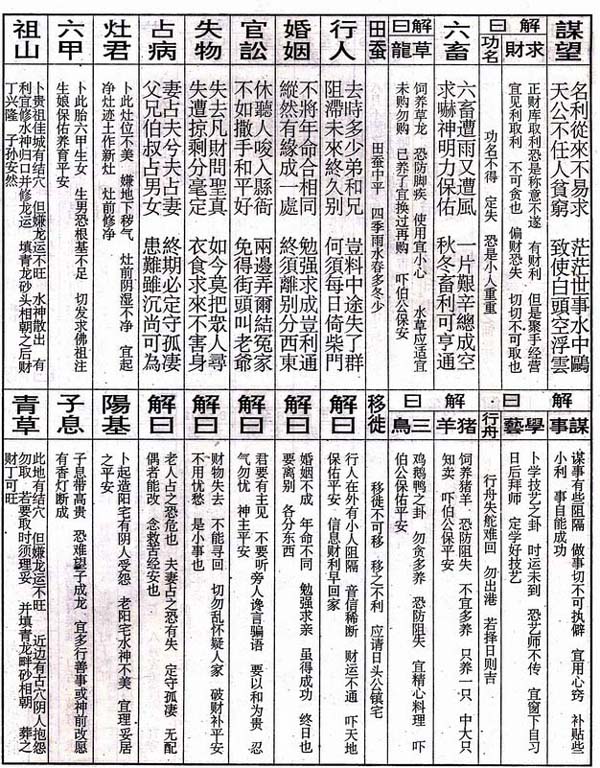 謀望
名利從來不易求 茫茫世事水中鷗
天公不任人貧窮 致使白頭空浮雲
解曰
求財
正财库取利恐是称意不遂 有财利 但是聚手经营
宜见利取利 不可贪也 偏财恐失 切切不可取也
功名
功名不得 定失 恐是小人重重
六畜
六畜遭雨又遭風 一片艱辛總成空
求嚇神明力保佑 秋冬畜利可亨通
解曰
草龍
饲养草龙 恐防脚疾 使用宜小心 水草应适宜
未购勿购 已养了宜换过再购 吓伯公保安
田蚕
田蚕中平 四季雨水春多冬少
行人
去時多少弟和兄 豈料中途失了群
阻滯未來終久别 何須每日倚柴門
婚姻
不將年命合相同 勉强求成豈利通
縱然有緣成一處 終須離别分西東
官訟
休聽人唆入縣衙 兩邊弄爾結冤家
不如撒手和平好 免得街頭叫老爺
失物
失去凡財問聖真 如今莫把眾人尋
失遭掠剩分毫定 衣食求來不害身
占病
妻占夫兮夫占妻 終期必定守孤凄
父兄伯叔占男女 患難雖沉尚可為
灶君
卜此灶位不美 嫌地下秽气 灶前阴湿不净 宜起
净灶迹土作新灶 灶前修净
六甲
卜此胎六甲生女 生男恐根基不足 切发求佛祖注
生娘保佑养育平安
祖山
卜贵祖佳城有结穴 但嫌龙运不旺 水神散出 有
利宜修水神归口并修龙运 填青龙砂头相朝之后财
丁兴隆 子孙安然
謀事
谋事有些阻隔 做事切不可执僻 宜用心窍 补贴些
小利 事自能成功
解曰
學藝
卜学技艺之卦 时运未到 恐艺师不传 宜窗下自习
日后拜师 定学好技艺
行舟
行舟失舵难回 勿出港 若择日则吉
解曰
猪羊
饲养猪羊 恐防阻失 不宜多养 只养一只 中大只
知卖 吓伯公保平安
三鳥
鸡鹅鸭之卦 勿贪多养 恐防阻失 宜精心料理 吓
伯公保平安
移徙
移徙不可移 移之不利 应请日头公镇宅
解曰
行人在外有小人阻隔 音信稀断 财运不通 吓天地
保佑平安 信息财利早回家
解曰
婚姻不成 年命不同 勉强求亲 虽得成功 终日也
要离别 各分东西
解曰
君要有主见 不要听旁人谗言骗语 要以和为贵 忍
气勿忧 神主平安
解曰
财物失去 不能寻回 切勿乱怀疑人家 破财补平安
不用忧愁 是小事也
解曰
老人占之恐危也 夫妻占之恐有失 定守孤凄 无配
偶者能改 念救苦经安也
陽基
卜起造阳宅有阴人受怨 老阳宅水神不美 宜理妥居
之平安
子息
子息带高贵 恐难望子成龙 宜多行善事或神前改愿
有香灯断成
青草
此地有结穴 但嫌龙运不旺 近边有古穴阴人抱怨
勿取 若要取时须理妥 并填青龙畔砂相朝 葬之
财丁可旺